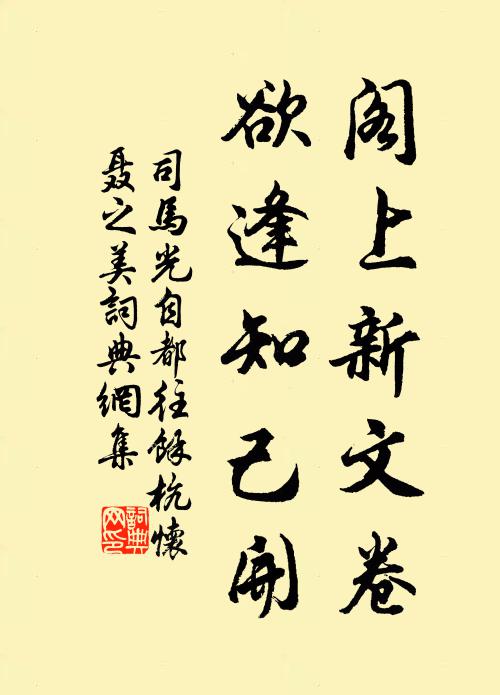 阁上新文卷
欲逢知己開
司馬光自都往餘杭懷
聂之美詞典網集
詞典
网印